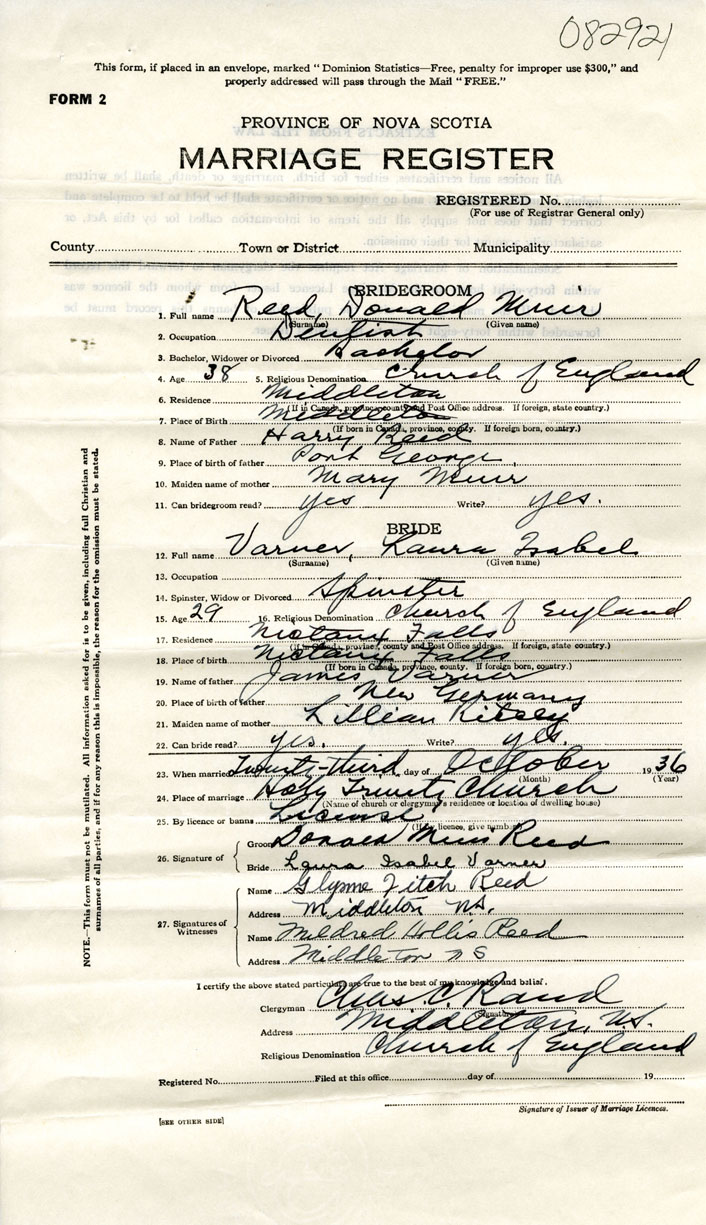 082921
This form, if placed in an envelope, marked "Dominion Statistics—Free, penalty for improper use $300," and
properly addressed will pass through the Mail "FREE."
FORM 2
PROVINCE OF NOVA SCOTIA
MARRIAGE REGISTER
REGISTERED No.
(For use of Registrar General only)
County Town or District Municipality
BRIDEGROOM
1. Full name Reed, Donald Muir
(Surname) (Given name)
2. Occupation Dentist
3. Bachelor, Widower or Divorced Bachelor
4. Age 38 5. Religious Denomination Church of England
6. Residence Middleton
(If in Canada, province, county and Post Office address. If foreign, state country.)
7. Place of Birth Middleton
(If born in Canada, province, county. If foreign born, country.)
8. Name of Father Harry Reed
9. Place of birth of father Port George
10. Maiden name of mother Mary Muir
11. Can bridegroom read? yes Write? yes.
BRIDE
12. Full name Varner, Laura Isabel
(Surname) (Given name)
13. Occupation
14. Spinster, Widow or Divorced Spinster
15. Age 29 16. Religious Denomination Church of England
17. Residence Nictaux Falls
(If in Canada, province, county and Post Office address. If foreign, state country.)
18. Place of birth Nictaux Falls
(If born in Canada, province, county. If foreign born, country.)
19. Name of father James Varner
20. Place of birth of father New Germany
21. Maiden name of mother Lillian
22. Can bride read? yes. Write? yes.
23. When married Twenty-third day of October 1936
(Month) (Year)
24. Place of marriage Holy Trinity Church
(Name of church or clergyman's residence or location of dwelling house)
25. By licence or banns License
(If by licence, give number)
26. Signature of
Groom Donald Muir Reed
Bride Laura Isabel Varner
27. Signatures of Witnesses
Name Glynne Fitch Reed
Address Middleton N.S.
Name Mildred Hollis Reed
Address Middleton N S
I certify the above stated particulars are true to the best of my knowledge and belief.
Clergyman Chas. C. Rand
(Signature)
Address Middleton, N.S.
Religious Denomination Church of England
Registered No. Filed at this office day of 19
Signature of Issuer of Marriage Licences.
[SEE OTHER SIDE]
NOTE.—This form must not be mutilated. All information asked for is to be given, including full Christian and
surnames of all parties, and if for any reason this is impossible, the reason for the omission must be stated.